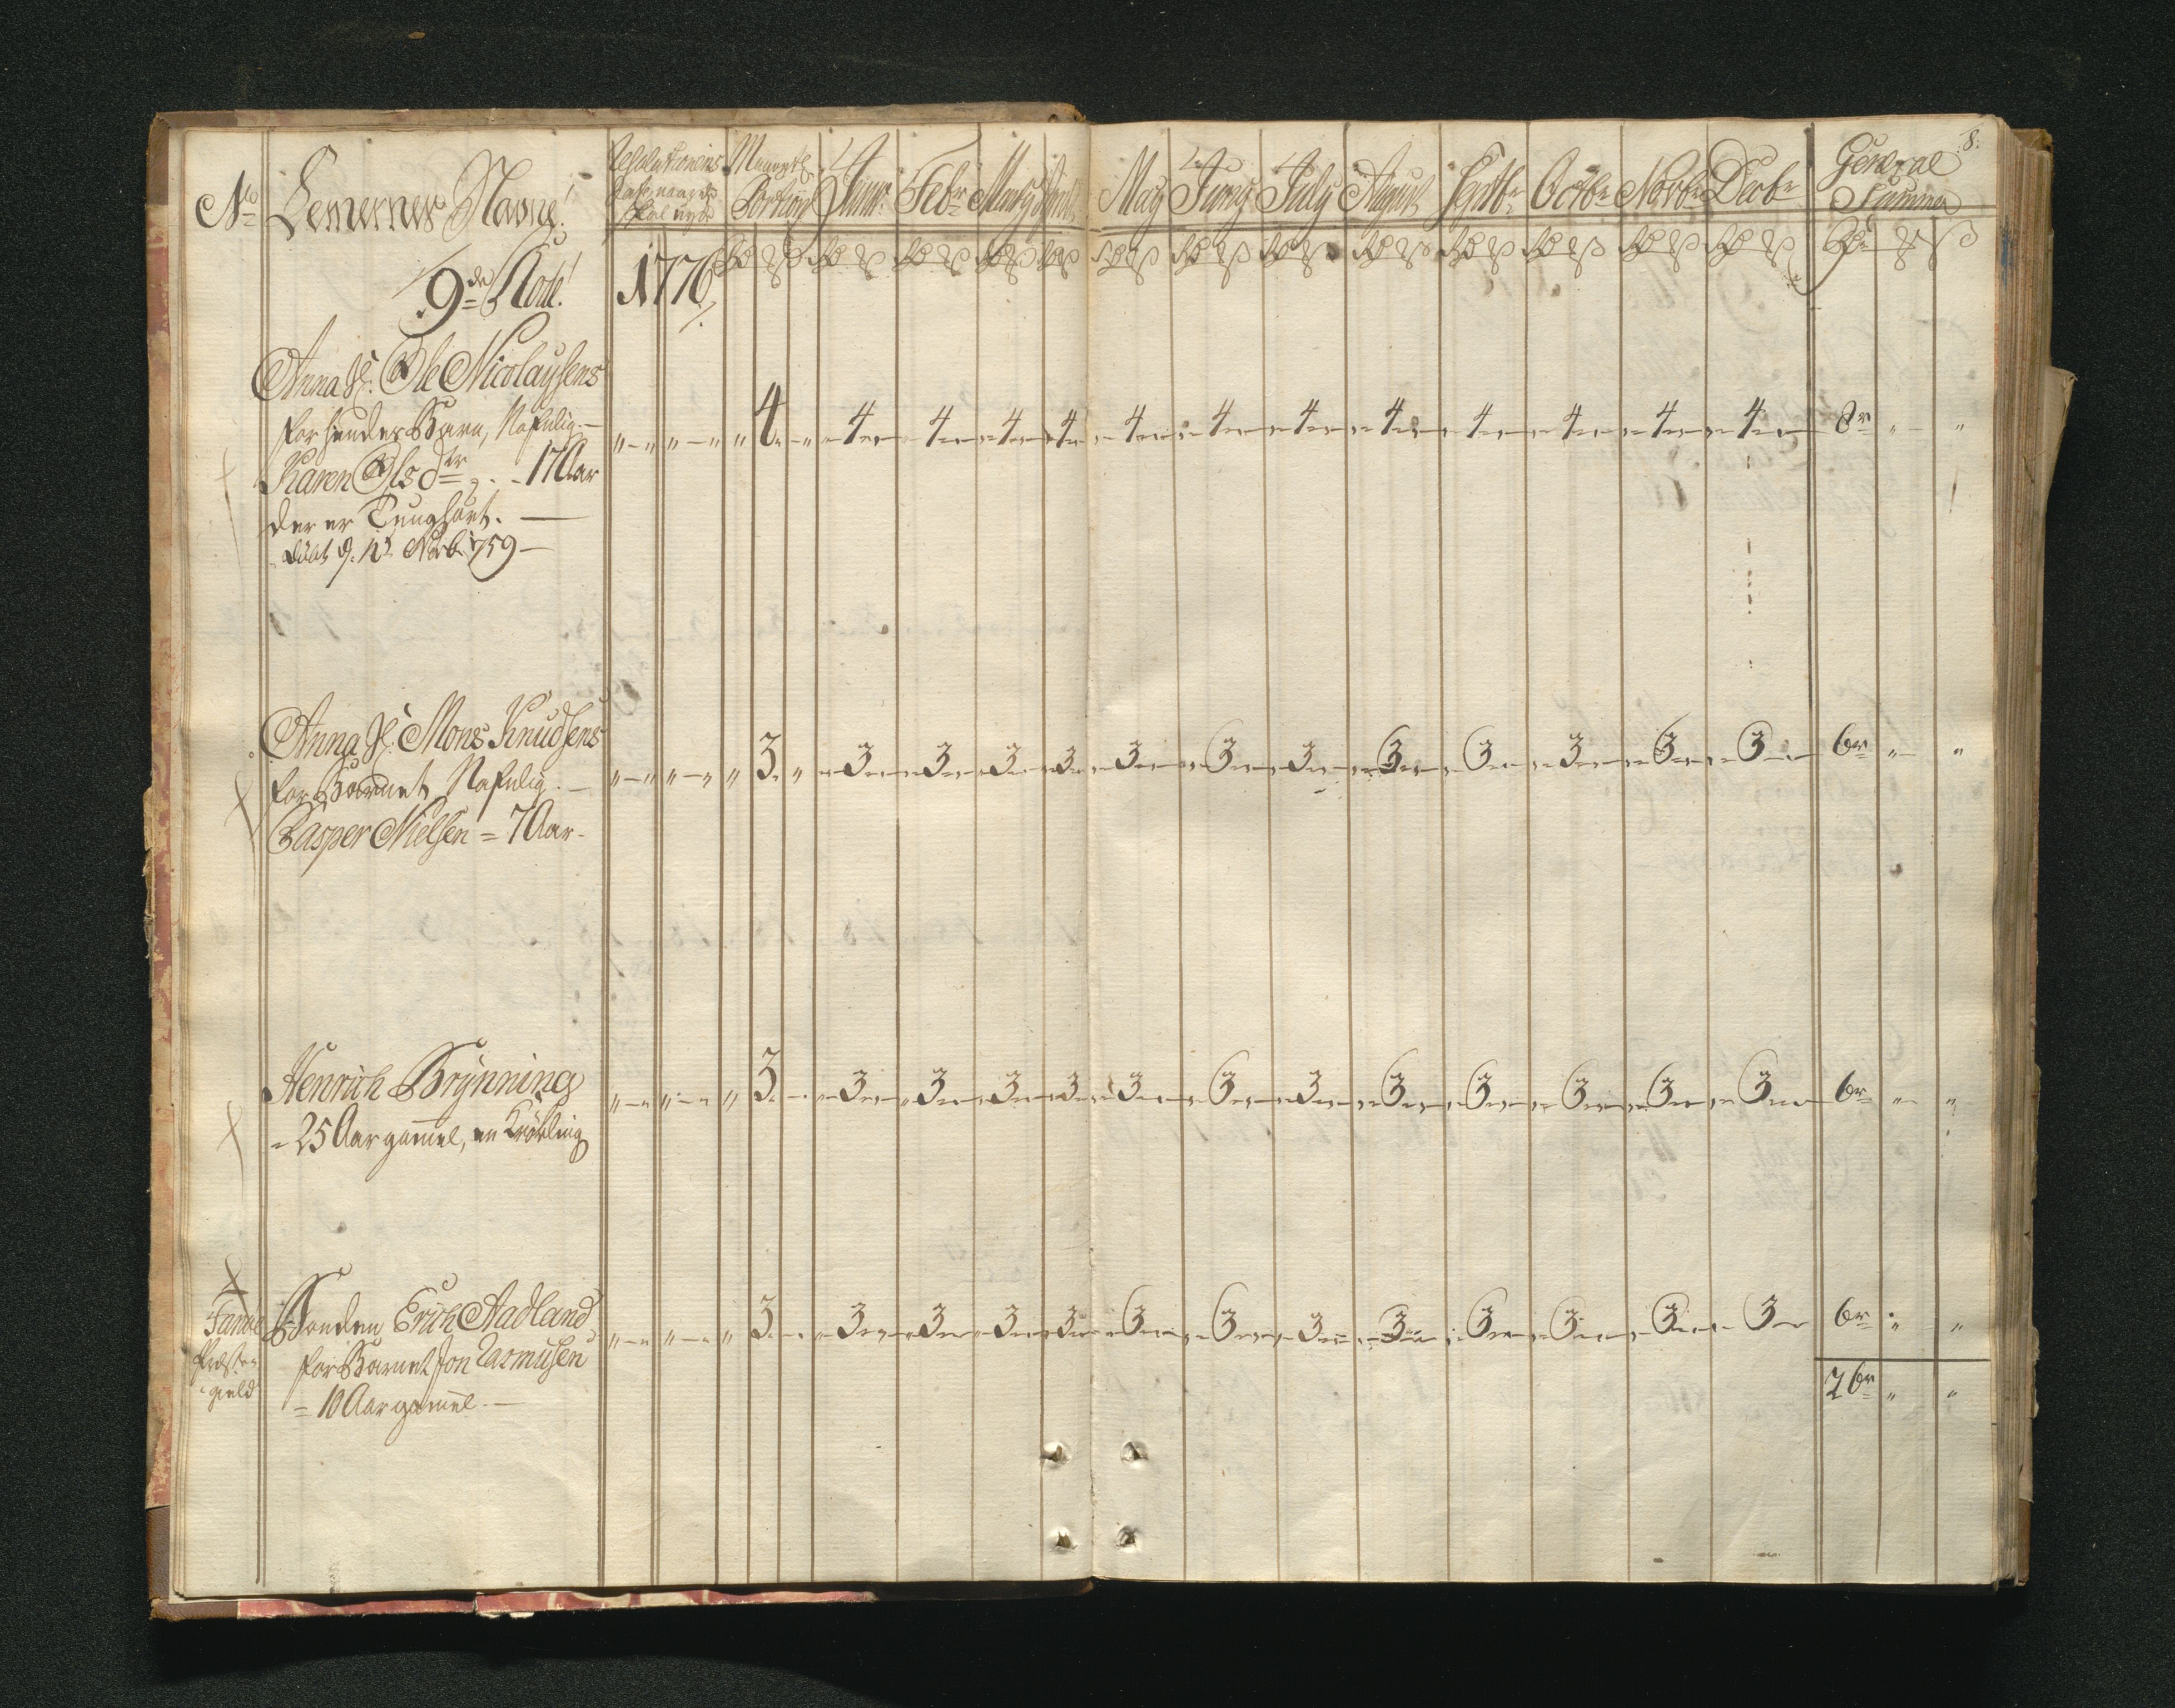 8.
No Lemernes Navne! Maanetl. Portion Janr. Febr. Marty April May Juny July August Septbr Octbr Novbr Decbr General Summa
9de Rode! 1776
Anna Sl. Ole Nicolaysens
for hendes Barn, Nafnlig. — „ — „ „ — „ „ 4. — „ 4 4 4 4 4 4 4 4 4 4 4 4 8r „ „
Karen Olsdr — 17 Aar
der er Tunghørt. —
Novbr 1759 —
Anna Sl. Mons Knudsens
for Barnet Nafnlig. — „ — „ „ — „ „ 3. „ 3 3 3 3 3 3 3 3 3 3 3 3 6r „ „
Casper Nielsen = 7 Aar.
Henrich Brynning „ — „ „ — „ „ 3. — 3 3 3 3 3 3 3 3 3 3 3 3 6r „ „
= 25 Aar gamel, en Krøbling
Fanøe Bonden Erich Aadland „ — „ „ — „ „ 3. — 3 3 3 3 3 3 3 3 3 3 3 3 6r „ „
Præste- for Barnet Jon Rasmusen
gield = 10 Aar gamel. — 26r „ „